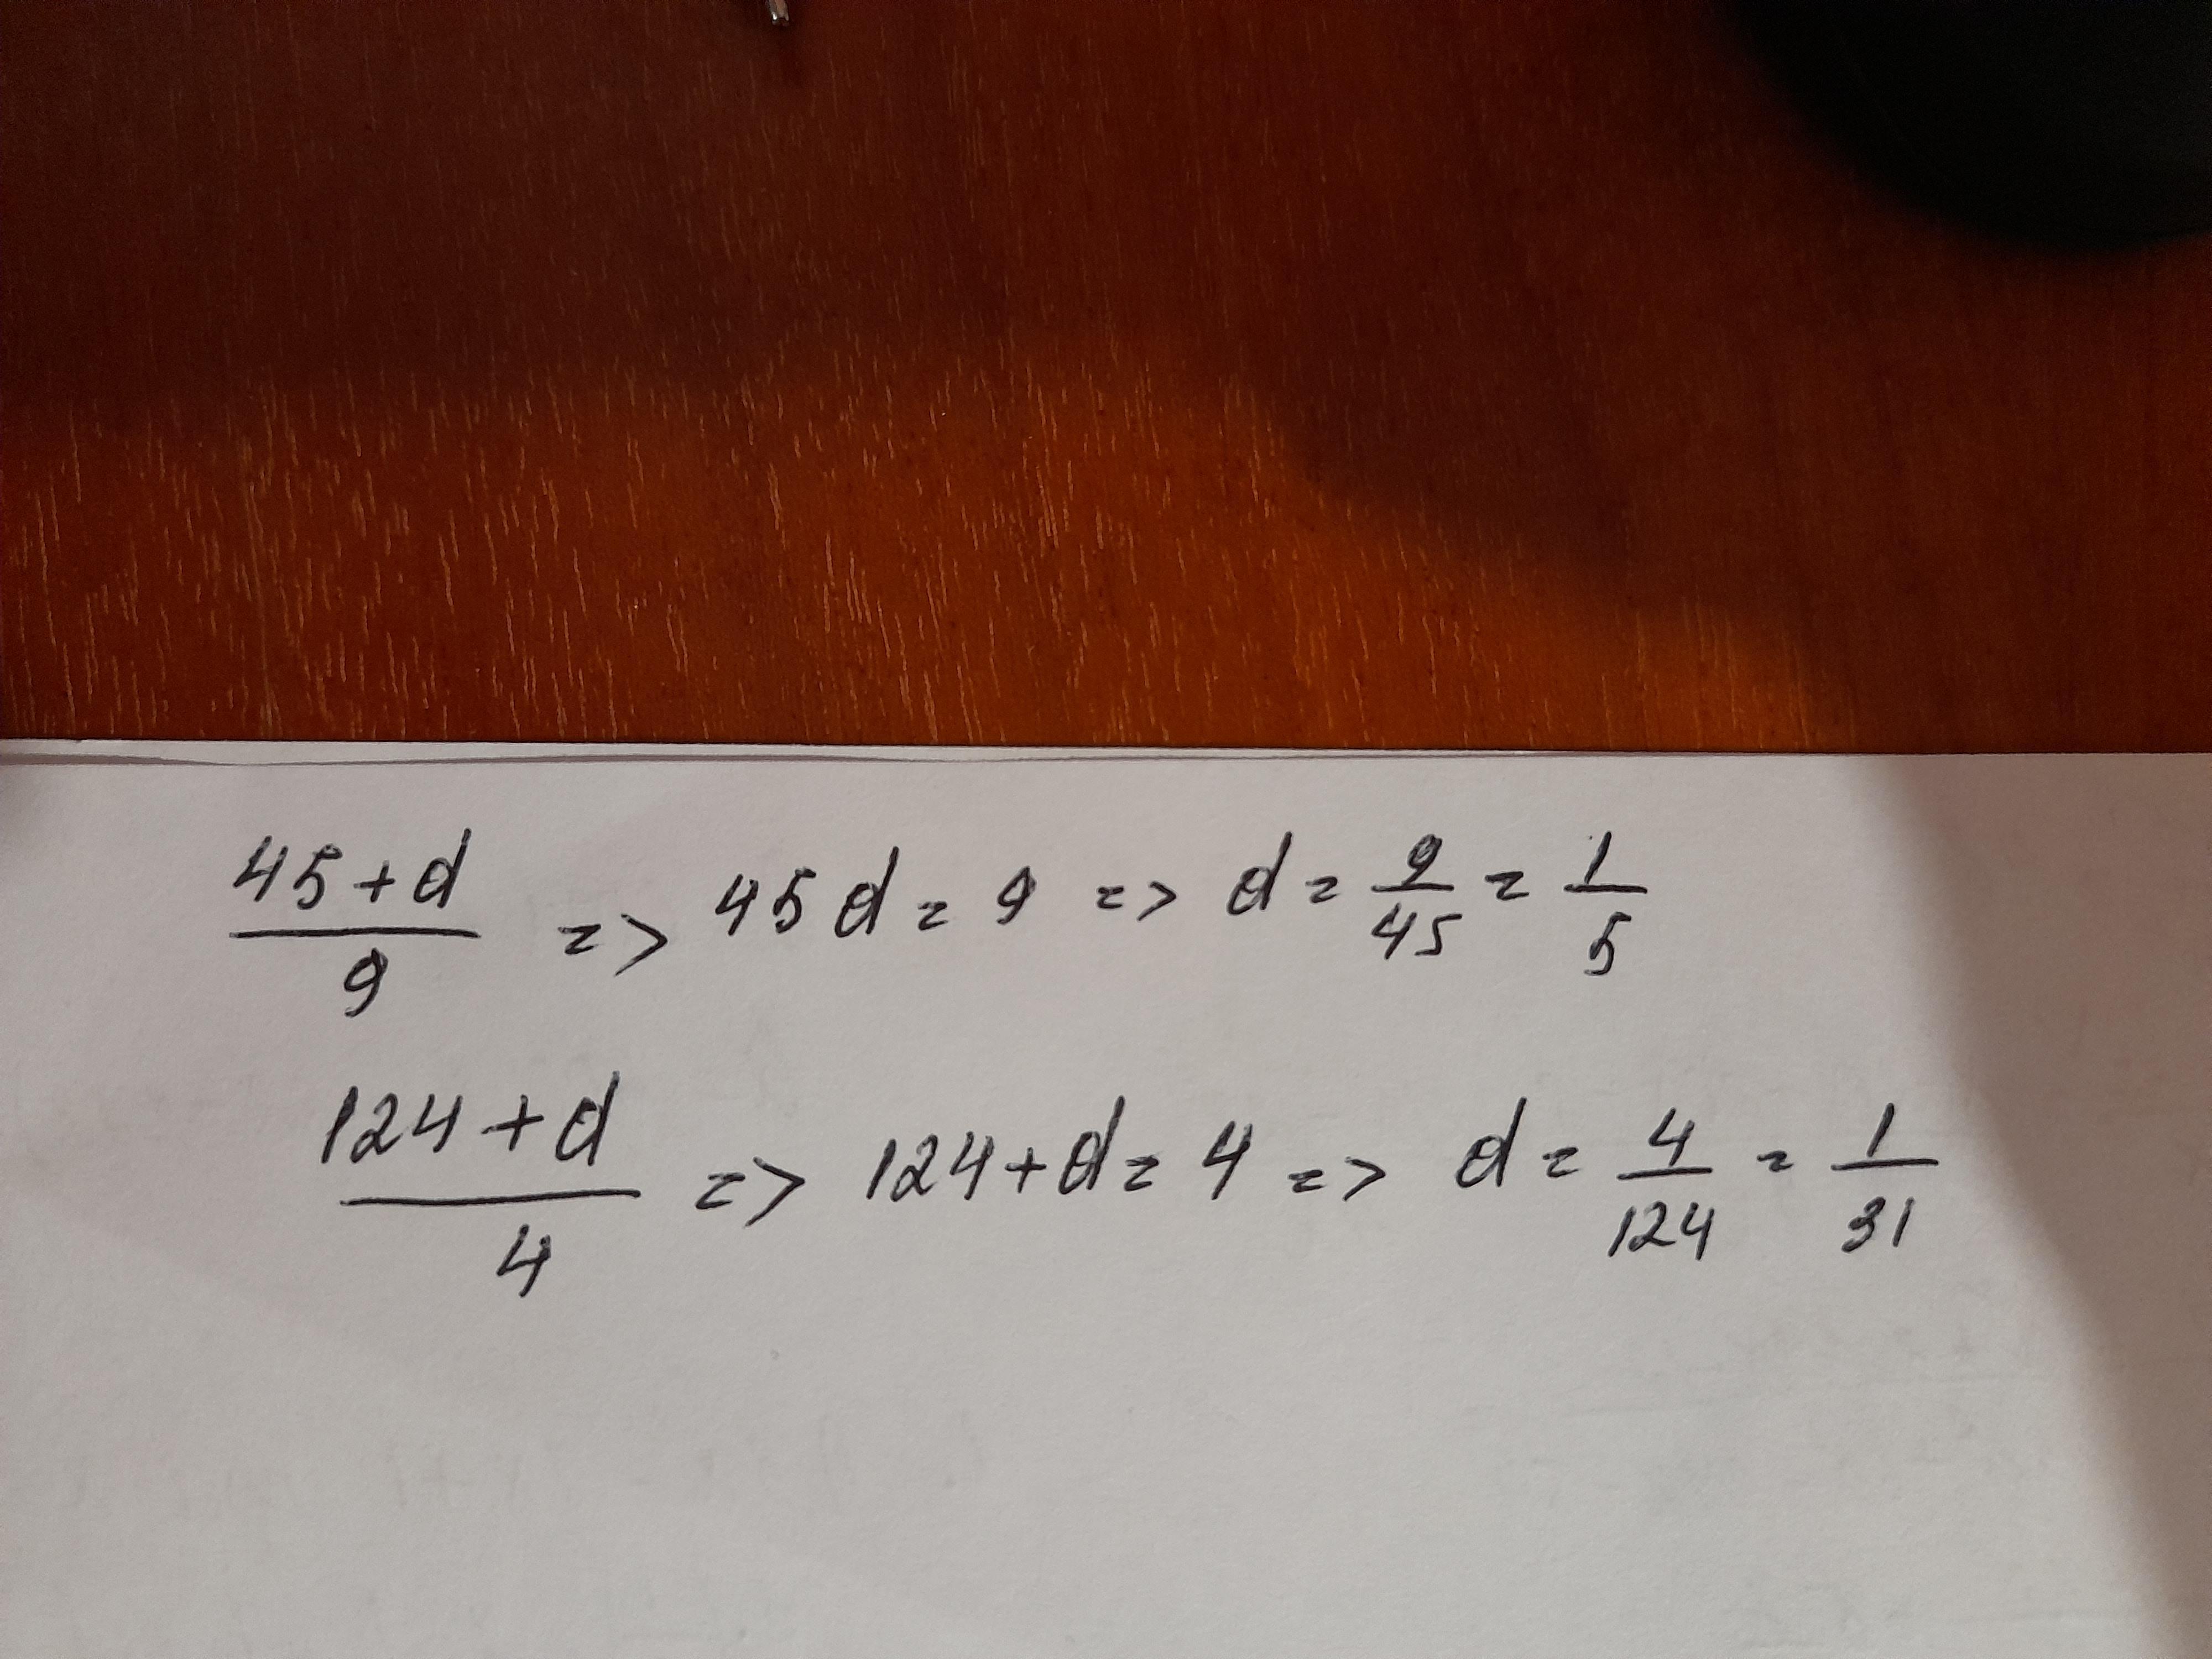 45+d/9 => 45d = 9 => d = 9/45 = 1/5
124+d/4 => 124+d = 4 => d = 4/124 = 1/31